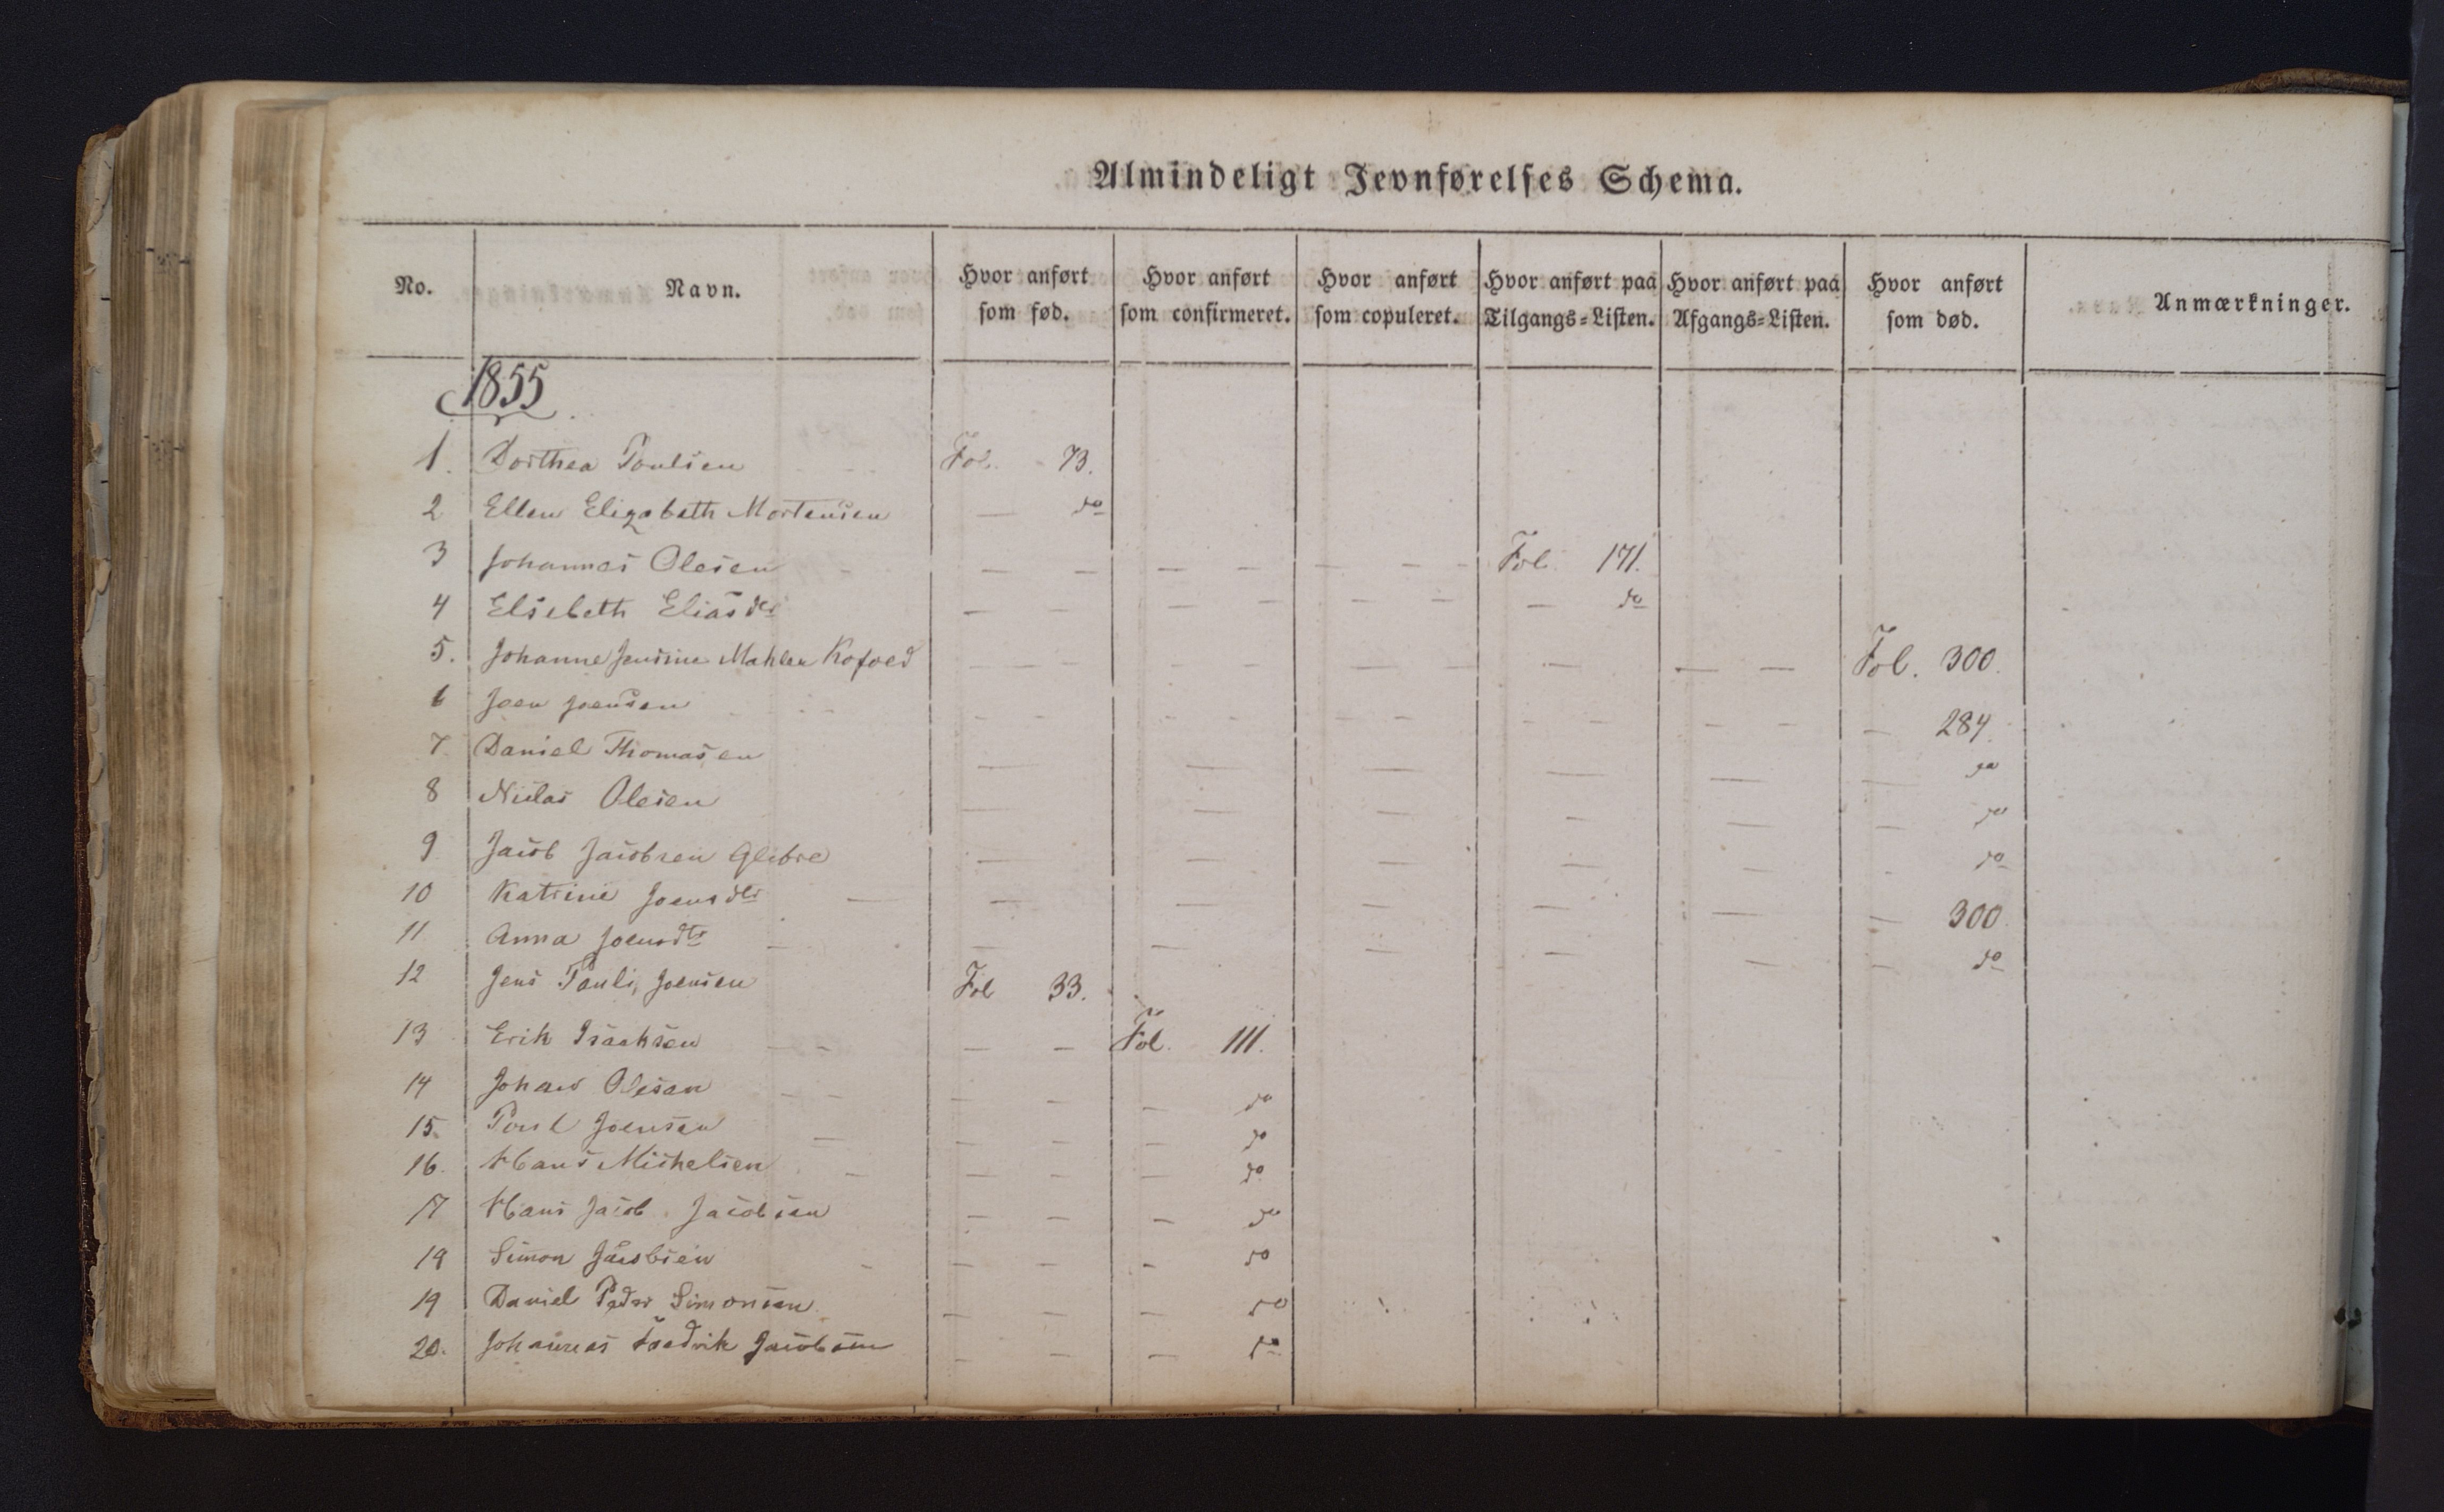 Almindeligt Jevnførelses Schema.
No. Navn. Hvor anført som fød. Hvor anført som confirmeret. Hvor anført som copuleret. Hvor anført paa Tilgangs=Listen. Hvor anført paa Afgangs=Listen. Hvor anført som død. Anmærkninger.
1855
1. Dorthea Poulsen Fol. 73.
2 Ellen Elizabeth Mortensen — do
3 Johannes Olesen — — — — — — Fol. 171.
4 Elsebeth Eliasdtr — — — — — — — do
5. Johanne Jensine Mahler Kofoed — — — — — — — — — Fol. 300.
6 Joen Joensen — — — — — — — — — — — 284.
7. Daniel Thomasen — — — — — — do
8 Niclas Olesen — — — — — — do
9. Jacob Jacobsen Glibre — — — — — do
10 Katrine Joensdtr — — — — — — — 300.
11 Anna Joensdtr — — — — — — — do
12 Jens Pauli Joensen Fol 33.
13 Erik Isaaksen — — — — Fol. 111.
14 Johan Olesen — — — — — do
15. Poul Joensen — — — — do
16. Hans Michelsen — — — — do
17 Hans Jacob Jacobsen — — — do
19 Simon Jacobsen — — — — do
19 Daniel Peder Simonsen — — — do
20. Johannes Fredrik Jacobsen — — — do